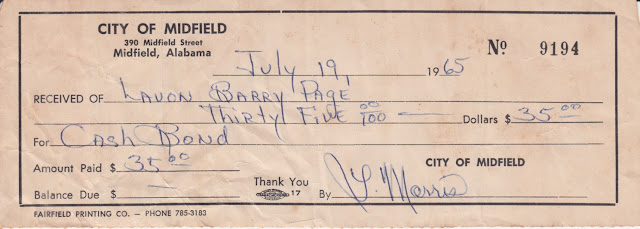 CITY OF MIDFIELD
390 Midfield Street
Midfield, Alabama
Nº 9194
July 19, 1965
RECEIVED OF Lavon Barry Page
Thirty Five 00/100 — Dollars $ 35.00
For Cash Bond
Amount Paid $ 35.00
CITY OF MIDFIELD
Balance Due $ —
Thank You
17
By J. Morris
FAIRFIELD PRINTING CO. — PHONE 785-3183